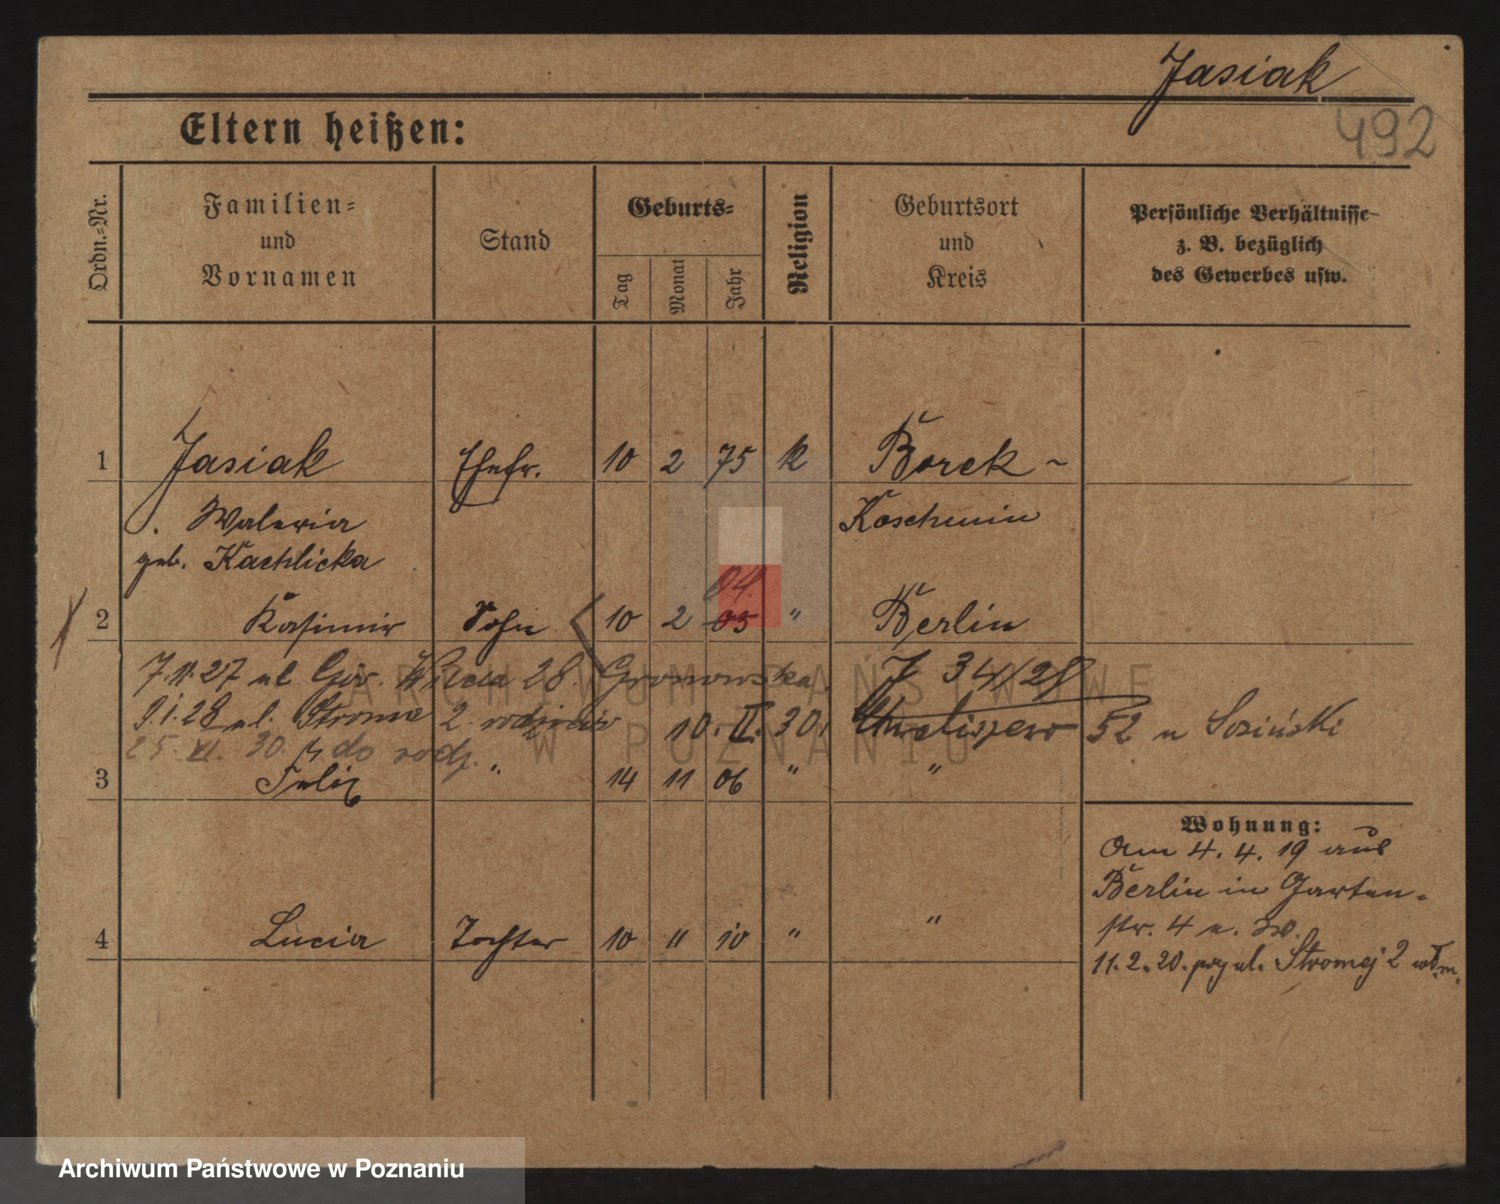 Jasiak
492
Eltern heißen:
Ordn.-Nr.
Familien-
und
Vornamen
Stand
Geburts-
Tag
Monat
Jahr
Religion
Geburtsort
und
Kreis
Persönliche Verhältnisse
z. B. bezüglich
des Gewerbes usw.
1 Jasiak Ehefr. 10 2 75 k Borek -
Waleria Koschmin
geb. Kachlicka
04.
2 Kasimir Sohn 10 2 05 " Berlin
7.11.27 ul Gór. Wilda 28. Gronowska. J 34/28
9.1.28 ul. Strome 2. rodziców 10.II.30. 52 u Sosiński
25. XI. 30. do rodz.
3 Felix " 14 11 06 " "
Wohnung:
Am 4. 4. 19 aus
Berlin in Garten-
str. 4 u. zw.
4 Lucia Tochter 10 11 10 " "
11.2.20. przy ul. Stromej 2
ARCHIWUM PAŃSTWOWE
W POZNANIU
Archiwum Państwowe w Poznaniu